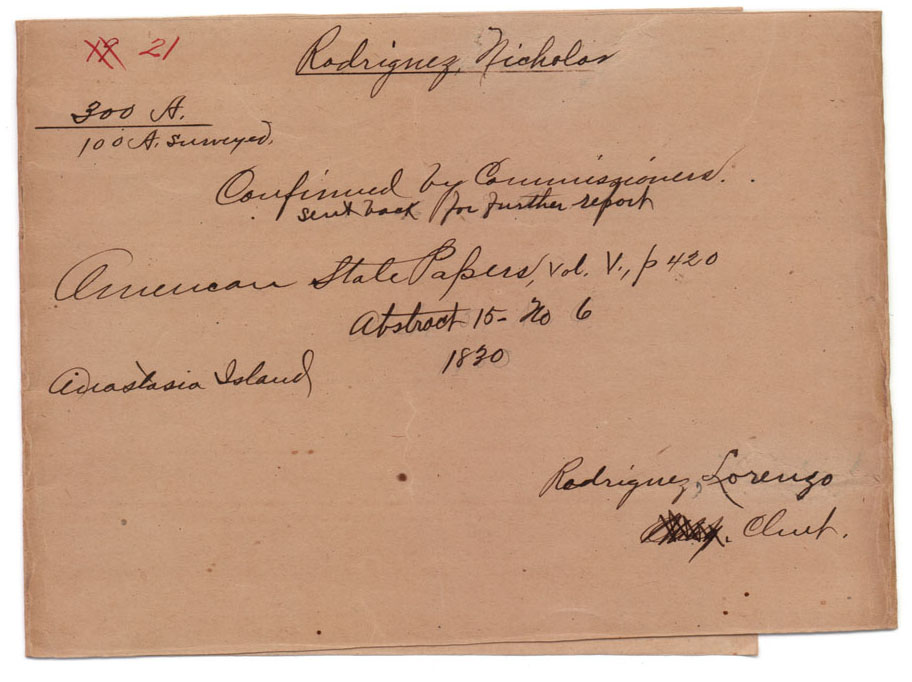 19 21
Rodriguez, Nicholas
300 A.
100 A. surveyed.
Confirmed by Commissioners.
sent back for further report
American State Papers, vol. V., p 420
Abstract 15- No 6
1830
Anastasia Island
Rodriguez, Lorenzo
Clmt.